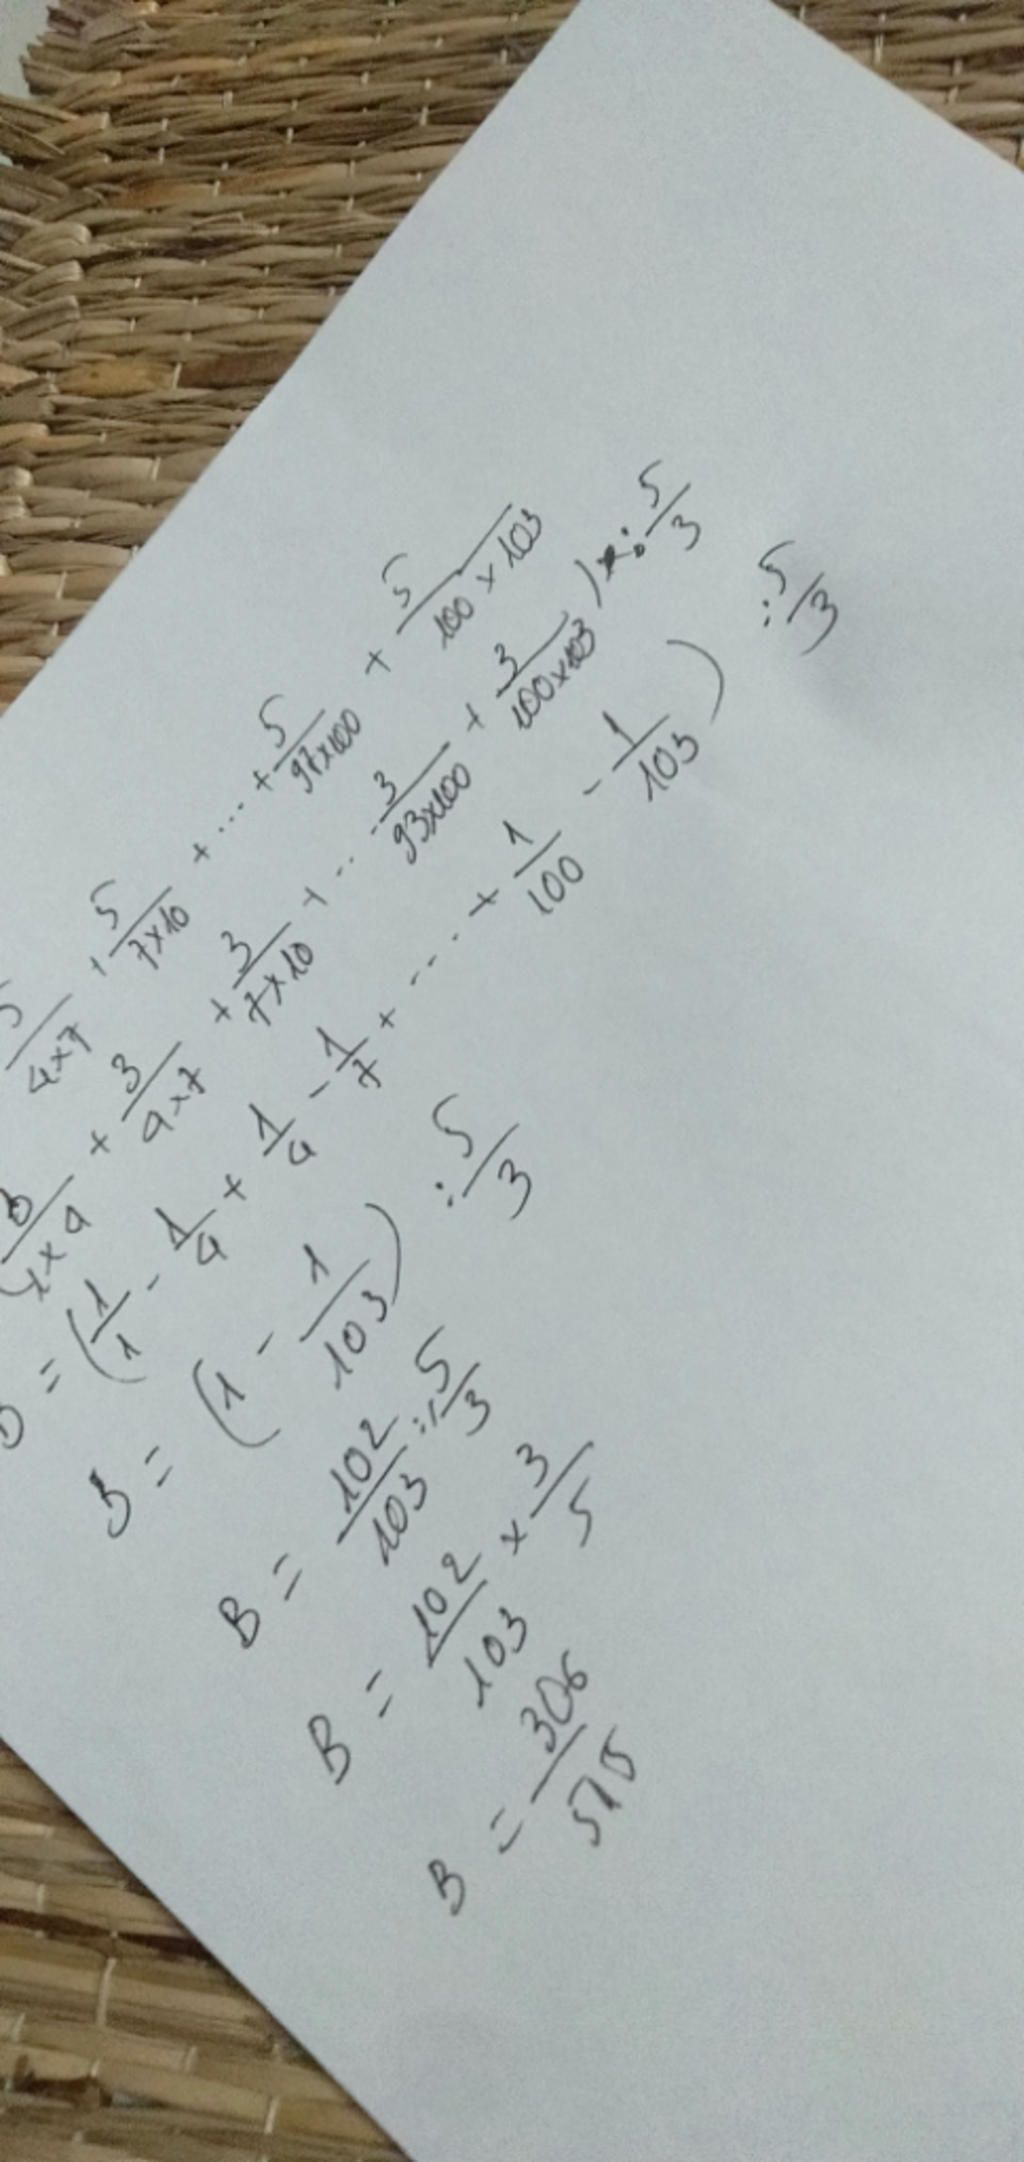 5/4×7 + 5/7×10 + ... + 5/97×100 + 5/100×103
3/1×4 + 3/4×7 + 3/7×10 + .. 3/93×100 + 3/100×103) : 5/3
= (1/1 - 1/4 + 1/4 - 1/7 + .... + 1/100 - 1/103) : 5/3
B = (1 - 1/103) : 5/3
B = 102/103 : 5/3
B = 102/103 × 3/5
B = 306/515